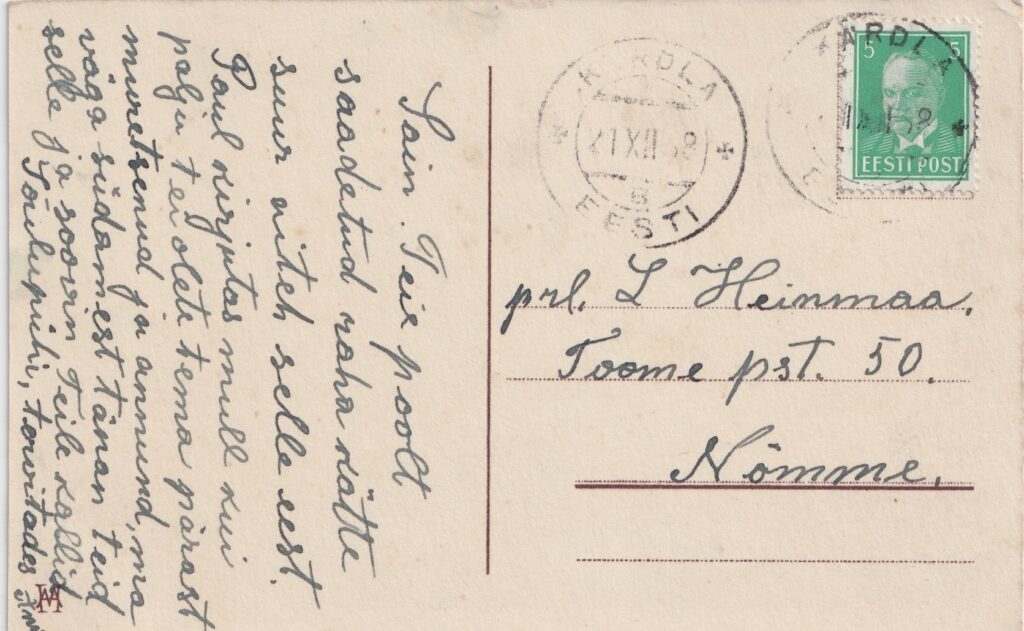 Sain Teie poolt
saadetud raha kätte
suur aitäh selle eest.
Paul kirjutas mull kui
palju teie olete tema pärast
muretsenud ja annund, ma
väga südamest tänan teid
selle ja soovin Teile kallid
Jõulupühi, tervitades
KÄRDLA
21 XII 38
EESTI
KARDLA
5 5
EESTI POST
prl. L Heinmaa,
Toome pst. 50.
Nõmme,